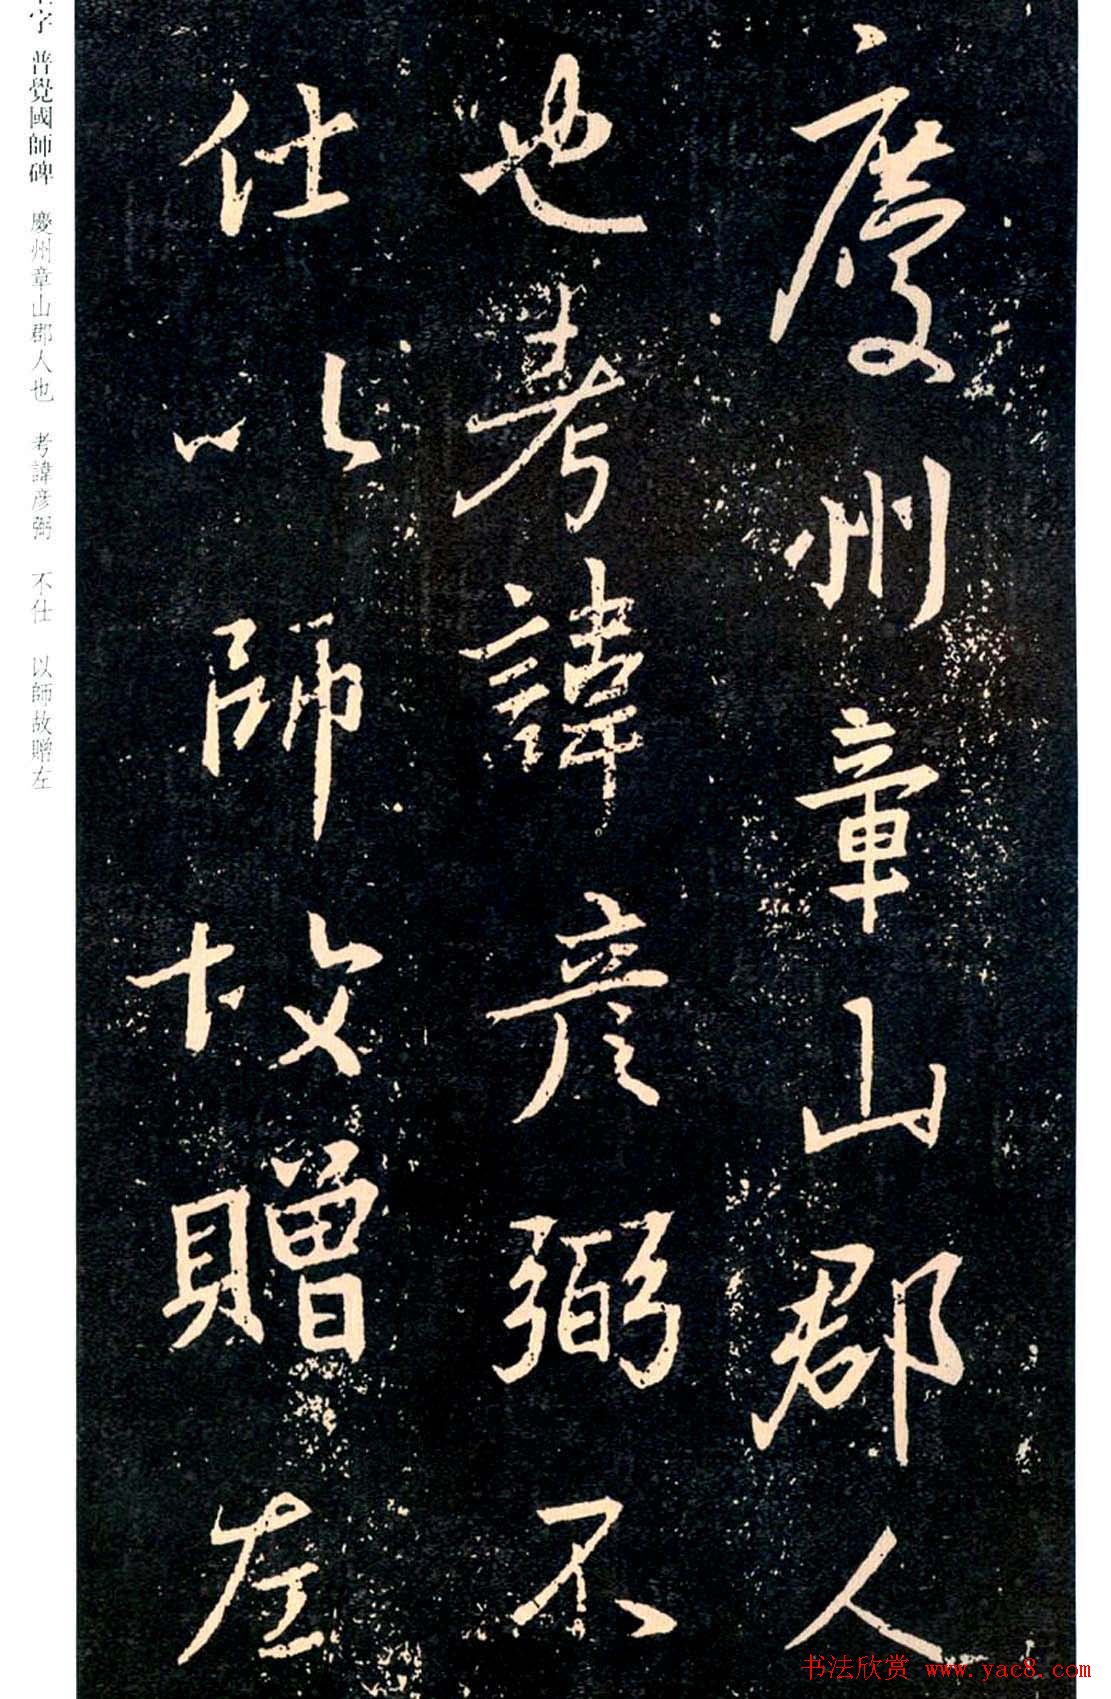 慶州章山郡人
也考諱彦弼不
仕以師故贈左
字 普覺國師碑 慶州章山郡人也 考諱彦弼 不仕 以師故贈左
书法欣赏 www.yac8.com